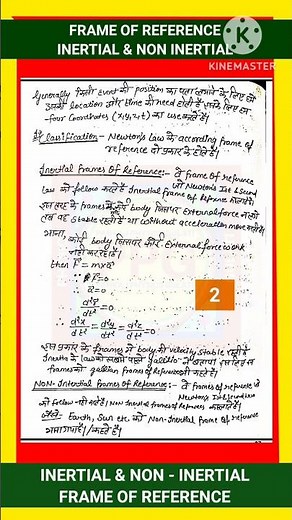 FRAME OF REFERENCE
INERTIAL & NON INERTIAL
K
KINEMASTER
Generally किसी event की position का पता लगाने के लिए हमे
उसकी location और time की need होती है इसके लिए हम
four Coordinates (x,y,z,t) का use करते हैं।
Classification:- Newton's Law के according frame of
reference दो प्रकार के होते हैं।
Inertial Frames Of Reference:- वे frame Of Reference
जो Newton's Ist & Second
law को follow करते हैं Inertial frame of Reference कहलाते हैं।
इस तरह के frames में कोई body जिसपर External force न लगे
तब वह stable रहती है या without acceleration move करती है।
माना, कोई body जिसपर कोई External force work
नहीं कर रहा है।
then F = m×a
∵ F=0
∴ a=0
d²r/dt² = 0
∴ d²x/dt² = d²y/dt² = d²z/dt² = 0
2
इस प्रकार के frames में body की velocity stable रहती है
Inertia के law को सबसे पहले
frames को galilian frames of Reference भी कहते हैं।
Non-Inertial frames of Reference:- वे frames of reference जो
Newton's Ist & Second law
को follow नहीं करते हैं। Non Inertial frames of Reference कहलाते हैं।
जैसे:- Earth, Sun etc को Non-Inertial frame of reference
माना गया है।/कहते हैं।
INERTIAL & NON - INERTIAL
FRAME OF REFERENCE